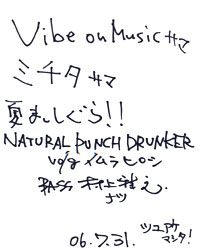 Vibe on Music サマ
ミチタ サマ
夏まっしぐら!!
NATURAL PUNCH DRUNKER
Vo/g イムラヒロシ
BASS
ナツ
06.7.31. ツユアケ
マシタ!